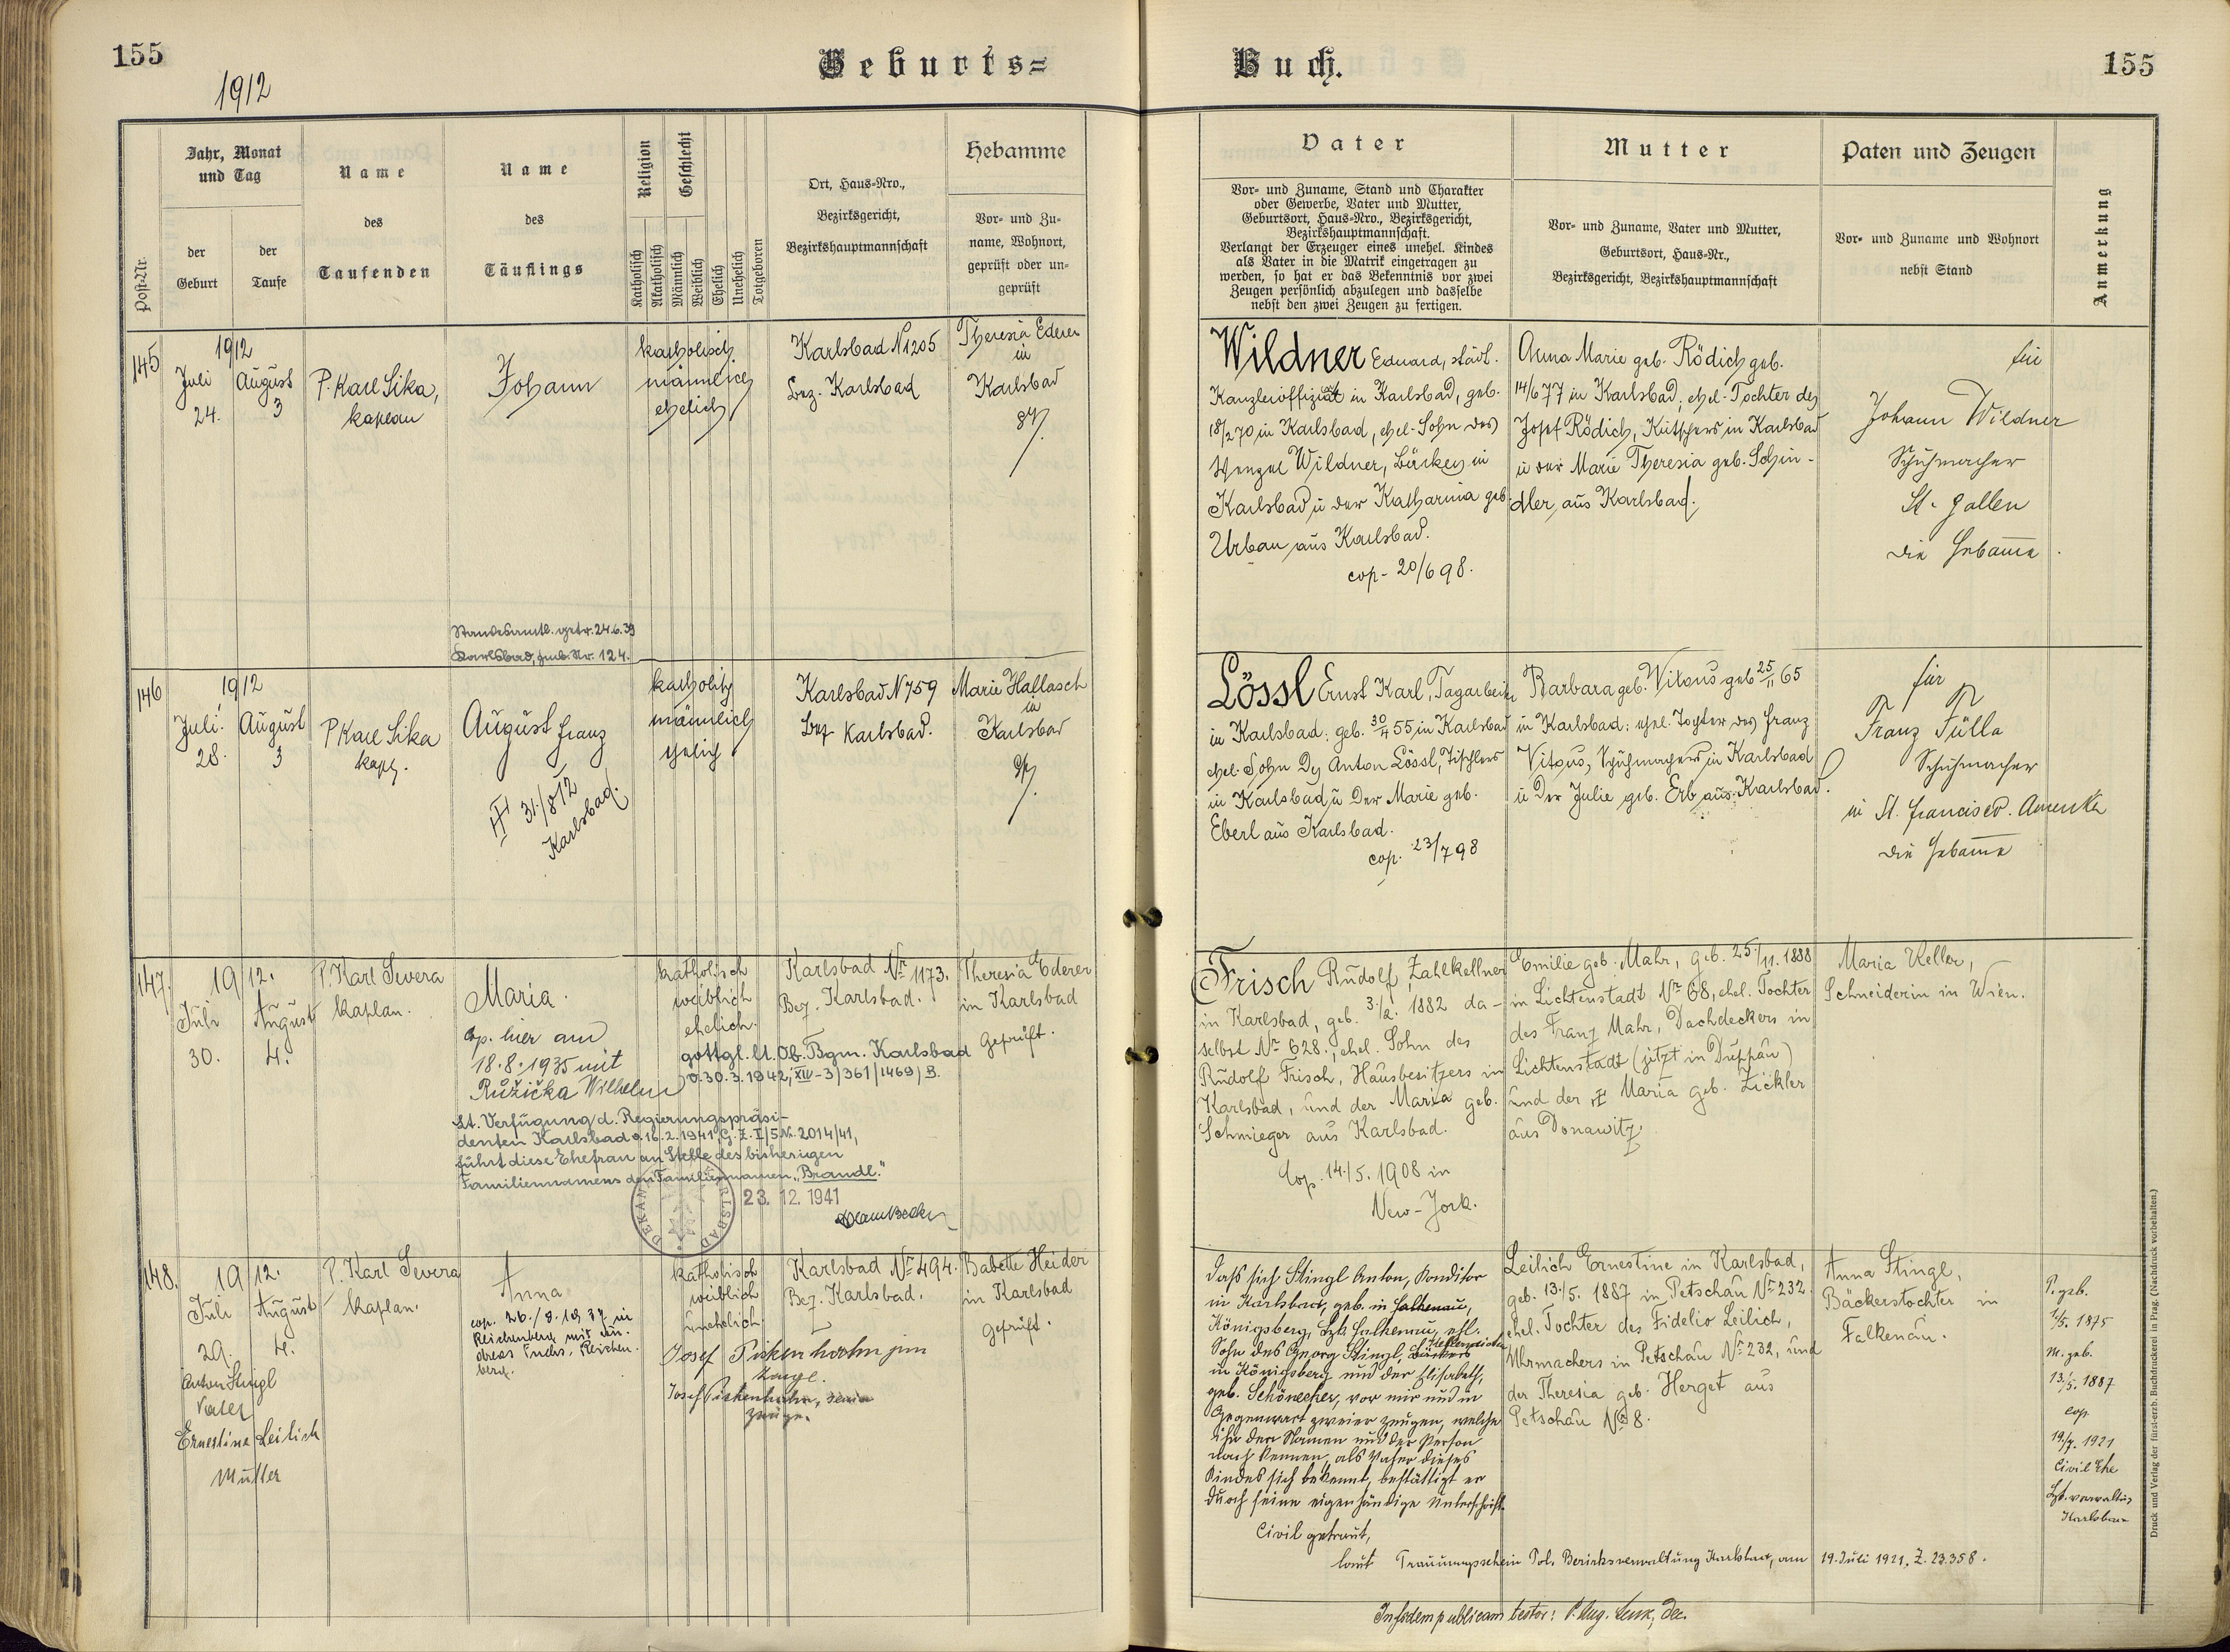 155
1912
Geburts=
Buch.
155
Jahr, Monat
und Tag
Name
des
Taufenden
Name
des
Täuflings
Religion
Geschlecht
Ort, Haus=Nro.,
Bezirksgericht,
Bezirkshauptmannschaft
Hebamme
Vor= und Zu=
name, Wohnort,
geprüft oder un=
geprüft
Post=Nr.
der
Geburt
der
Taufe
Katholisch
Akatholisch
Männlich
Weiblich
Ehelich
Unehelich
Totgeboren
Vater
Vor= und Zuname, Stand und Charakter
oder Gewerbe, Vater und Mutter,
Geburtsort, Haus=Nro., Bezirksgericht,
Bezirkshauptmannschaft.
Verlangt der Erzeuger eines unehel. Kindes
als Vater in die Matrik eingetragen zu
werden, so hat er das Bekenntnis vor zwei
Zeugen persönlich abzulegen und dasselbe
nebst den zwei Zeugen zu fertigen.
Mutter
Vor= und Zuname, Vater und Mutter,
Geburtsort, Haus=Nr.,
Bezirksgericht, Bezirkshauptmannschaft
Paten und Zeugen
Vor= und Zuname und Wohnort
nebst Stand
Anmerkung
145
1912
Juli
24.
August
3
P. Karl Sika,
kaplan
Johann
katholisch
männlich
ehelich
Karlsbad N 1205
Bez. Karlsbad
Theresia Ederer
in
Karlsbad
Wildner Eduard, städt.
Kanzleioffiziat in Karlsbad, geb.
18/2 70 in Karlsbad, ehel. Sohn des
Wenzel Wildner, Bäckers in
Karlsbad u der Katharina geb.
Urban aus Karlsbad.
cop. 20/6 98.
Anna Marie geb. Rödich geb.
14/6 77 in Karlsbad, ehel. Tochter des
Josef Rödich, Kutschers in Karlsbad
u der Marie Theresia geb. Schin-
dler, aus Karlsbad.
für
Johann Wildner
Schuhmacher
St. Gallen
die Hebamme.
Standesamtl. getr. 24.6.39
Karlsbad, Nr. 124.
146
1912
Juli
28.
August
3
P Karl Sika
kapl.
August Franz
31/8 12
Karlsbad.
katholisch
männlich
ehelich
Karlsbad N 759
Bez Karlsbad.
Marie Hallasch
in
Karlsbad
Lössl Ernst Karl, Tagarbeiter
in Karlsbad: geb. 30/4 55 in Karlsbad
ehel. Sohn des Anton Lössl, Tischlers
in Karlsbad u der Marie geb.
Eberl aus Karlsbad.
cop. 23/7 98
Barbara geb. Vitous geb 25/11 65
in Karlsbad: ehel. Tochter des Franz
Vitous, Schuhmachers in Karlsbad
u der Julie geb. Erb aus Karlsbad.
für
Franz Fülla
Schuhmacher
in St. Francisco. Amerika
die Hebamme
147.
1912.
Juli
30.
August
4.
P. Karl Severa
kaplan.
Maria.
Cop. hier am
18.8.1935 mit
Růžička Wilhelm
katholisch
weiblich
ehelich.
Karlsbad Nr 1173.
Bez. Karlsbad.
Theresia Ederer
in Karlsbad
Geprüft.
gottgl. lt. Ob. Bgm. Karlsbad
v. 30.3.1942, XIV-3/361/1469/B.
Lt. Verfügung d. Regierungspräsi-
denten Karlsbad v. 16.2.1941, G.Z. I/5 Nr. 2014/41,
führt diese Ehefrau an Stelle des bisherigen
Familiennamens den Familiennamen „Brandl."
23. 12. 1941
DEKAN
Frisch Rudolf, Zahlkellner
in Karlsbad, geb. 3./2. 1882 da-
selbst Nr 628., ehel. Sohn des
Rudolf Frisch, Hausbesitzers in
Karlsbad, und der Maria geb.
Schmieger aus Karlsbad.
Cop. 14./5. 1908 in
New-York.
Emilie geb. Mahr, geb. 25./11. 1888
in Lichtenstadt Nr 68, ehel. Tochter
des Franz Mahr, Dachdeckers in
Lichtenstadt (jetzt in Duppau)
und der Maria geb. Zickler
aus Donawitz.
Maria Keller,
Schneiderin in Wien.
148.
1912.
Juli
29.
August
4.
Anton Stingl
Vater
Ernestine Leilich
Mutter
P. Karl Severa
kaplan.
Anna
cop. 26./8. 1937 in
Reichenberg mit An-
dreas Fuchs, Reichen-
berg.
katholisch
weiblich
unehelich.
Josef Pickenhahn jun
Zeuge.
Josef Pickenhahn, senior
Zeuge.
Karlsbad Nr 494.
Bez. Karlsbad.
Babette Heider
in Karlsbad
Geprüft.
Dass sich Stingl Anton, Konditor
in Karlsbad, geb. in Falkenau,
Königsberg, Bzk. Falkenau, ehl.
Sohn des Georg Stingl, Bäckers
in Königsberg und der Elisabeth,
geb. Schönecker, vor mir und in
Gegenwart zweier Zeugen, welche
ihn dem Namen und der Person
nach kennen, als Vater dieses
Kindes sich bekennt, bestättigt er
durch seine eigenhändige Unterschrift.
Civil getraut,
laut Trauungsschein Pol. Bezirksverwaltung Karlsbad, am 19. Juli 1921, Z. 23.358.
Leilich Ernestine in Karlsbad,
geb. 13./5. 1887 in Petschau Nr 232.
ehel. Tochter des Fidelio Leilich,
Uhrmachers in Petschau Nr 232, und
der Theresia geb. Herget aus
Petschau Nr 8.
Anna Stingl,
Bäckerstochter in
Falkenau.
V. geb.
1./5. 1875
M. geb.
13./5. 1887
cop.
19./7. 1921
Civil Ehe
Bez. verwaltung
Karlsbad
In fidem publicam testor: P. Aug. Senk, Dec.
Druck und Verlag der fürst-erzb. Buchdruckerei in Prag. (Nachdruck vorbehalten.)